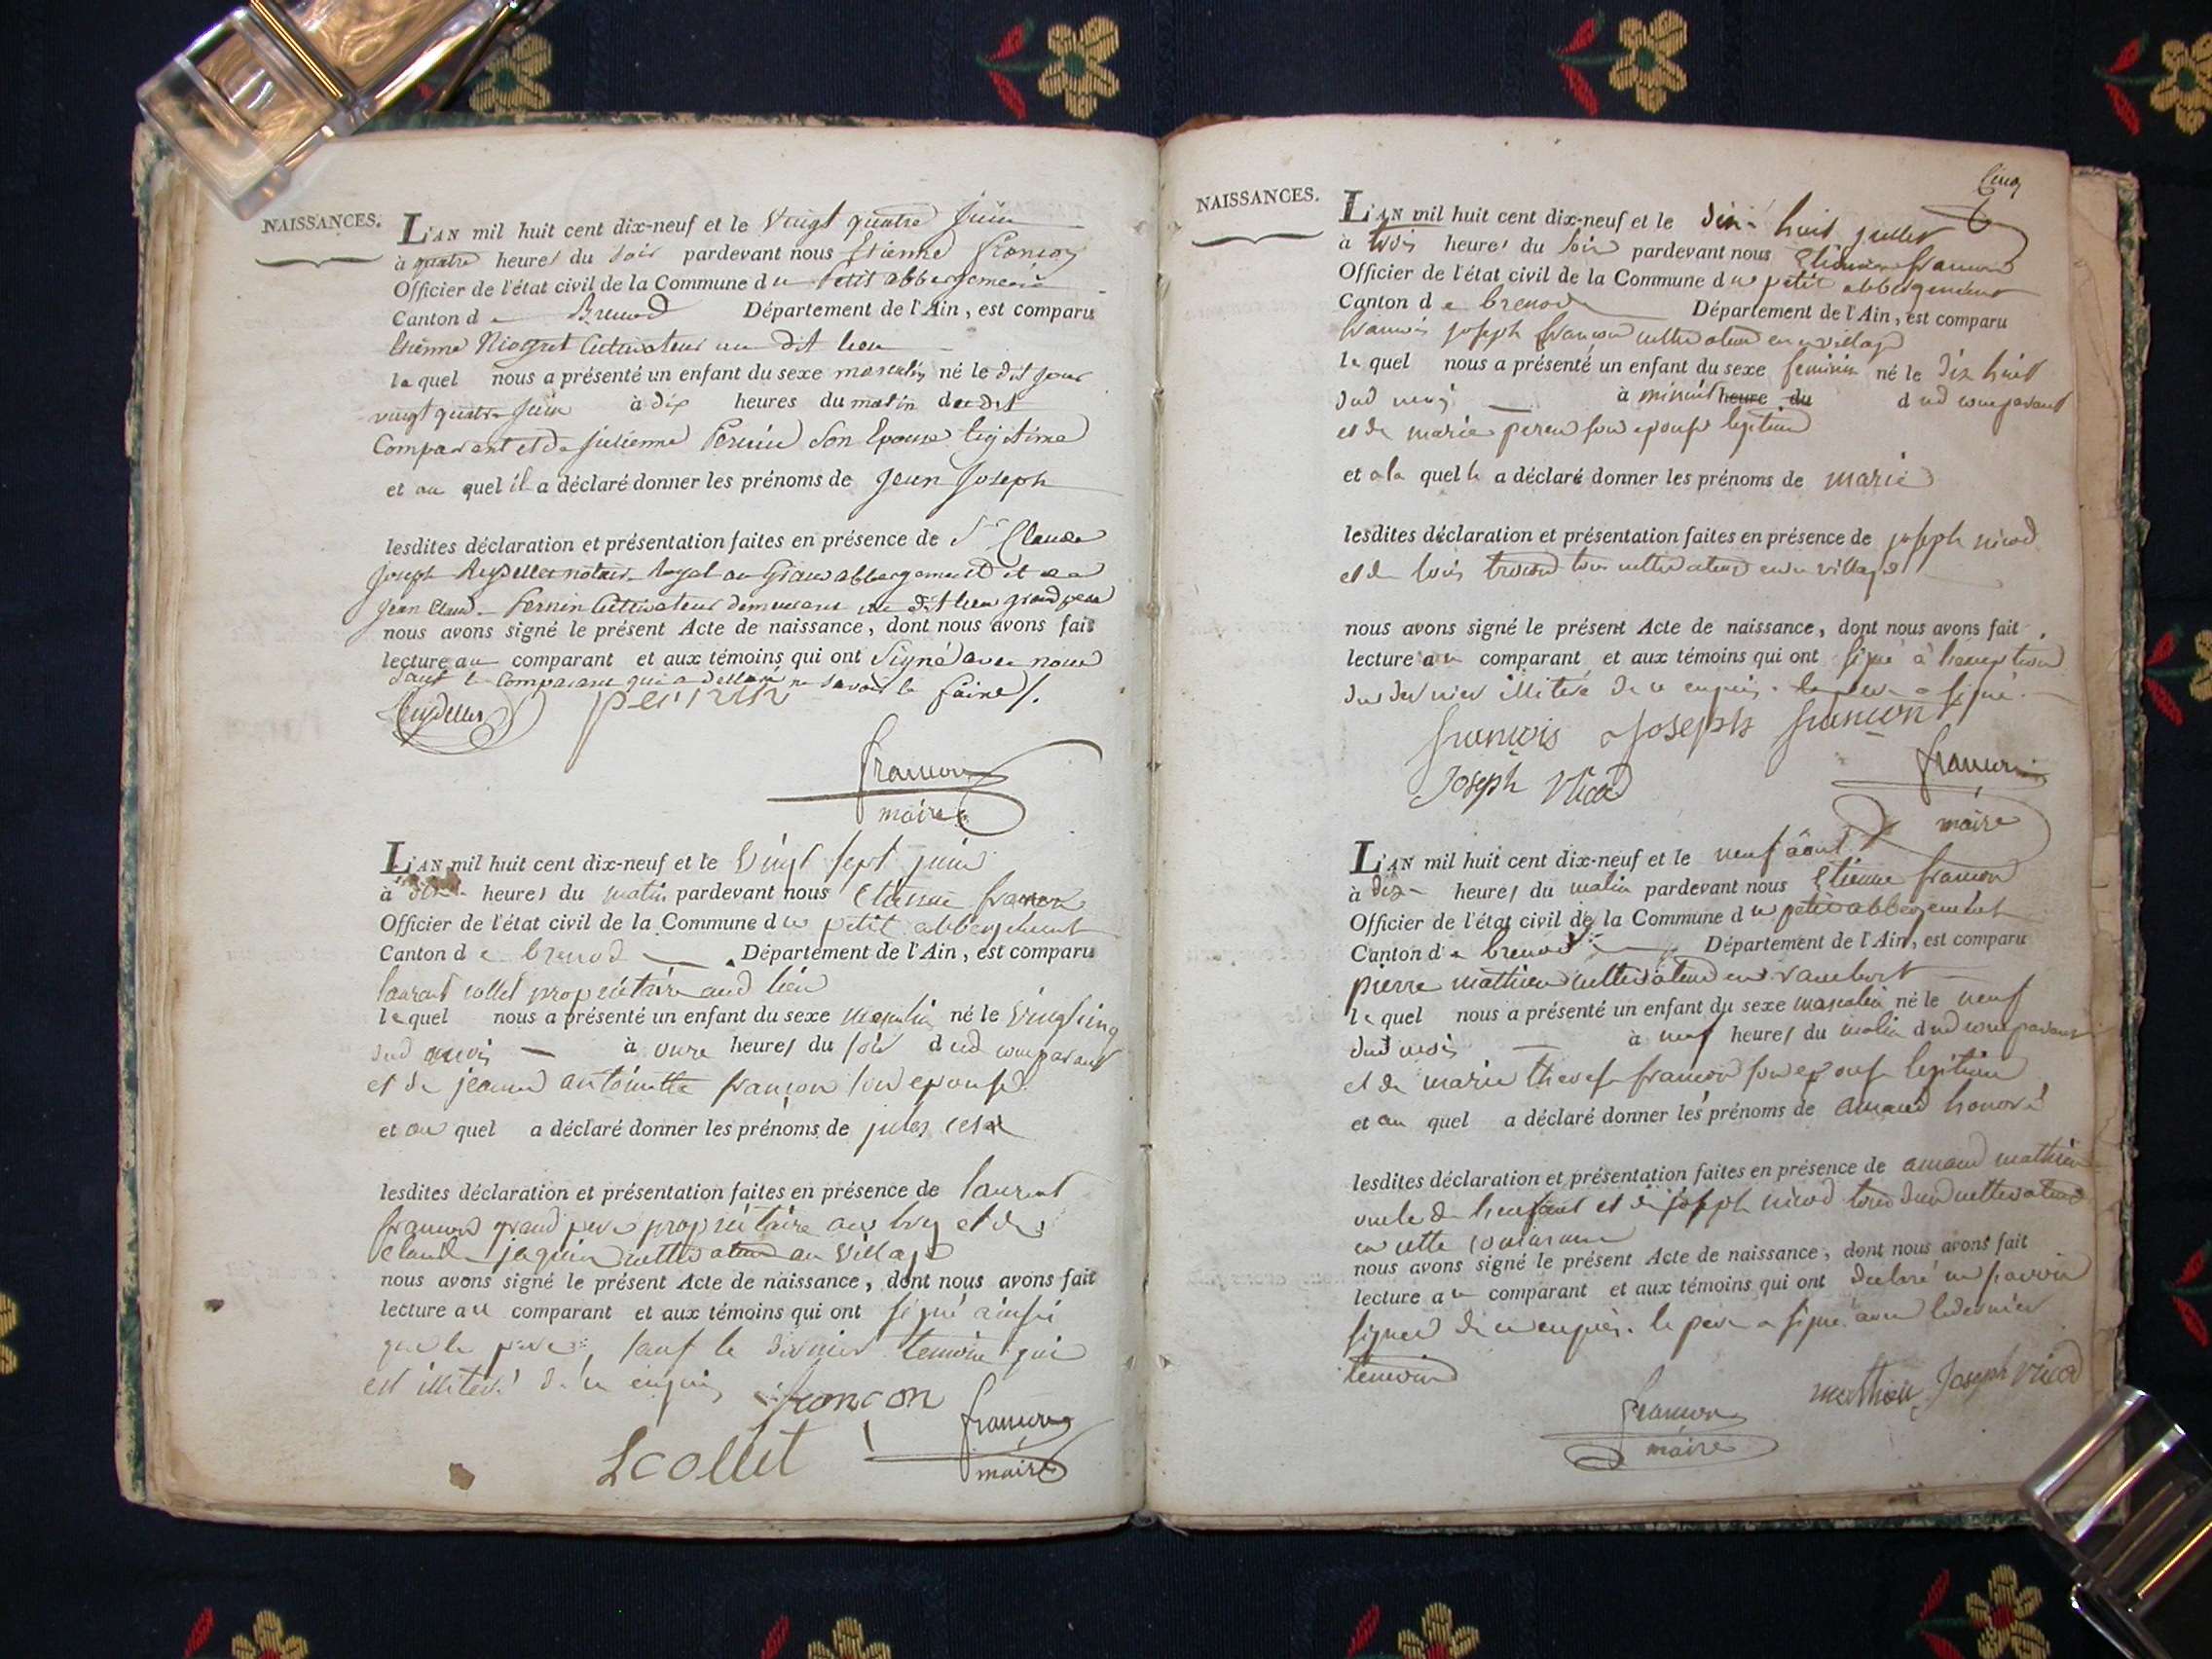 NAISSANCES.
L'AN mil huit cent dix-neuf et le vingt quatre Juin
à quatre heures du soir pardevant nous Etienne françon
Officier de l'état civil de la Commune du Petit abbergement
Canton de Brenod Département de l'Ain, est comparu
Etienne Cultivateur au dit lieu
lequel nous a présenté un enfant du sexe masculin né le dit jour
vingt quatre Juin à dix heures du matin du dit
Comparant et de Julienne Pernin Son Epouse legitime
et au quel il a déclaré donner les prénoms de Jean Joseph
lesdites déclaration et présentation faites en présence de Sr Claude
Joseph notaire Royal au Grand abbergement et de
Jean Claude Pernin Cultivateur demeurant au dit lieu grand pere
nous avons signé le présent Acte de naissance, dont nous avons fait
lecture au comparant et aux témoins qui ont Signé avec nous
Sauf le Comparant qui a déclaré ne savoir le faire/.
pernin
françon
maire
L'AN mil huit cent dix-neuf et le vingt sept juin
à heures du matin pardevant nous etienne françon
Officier de l'état civil de la Commune du petit abbergement
Canton de brenod Département de l'Ain, est comparu
laurent collet propriétaire aud lieu
lequel nous a présenté un enfant du sexe masculin né le vingt cinq
dud mois à onze heures du soir dud comparant
et de jeanne antoinette françon son epouse
et au quel a déclaré donner les prénoms de jules cesar
lesdites déclaration et présentation faites en présence de laurent
françon grand pere propriétaire au lieu et de
claude jaquin cultivateur au village
nous avons signé le présent Acte de naissance, dont nous avons fait
lecture au comparant et aux témoins qui ont signé ainsi
que le pere, sauf le dernier temoin qui
est illiteré de ce enquis
françon
françon
L collet
maire
Cinq
NAISSANCES.
L'AN mil huit cent dix-neuf et le dix-huit juillet
à trois heures du soir pardevant nous Etienne françon
Officier de l'état civil de la Commune du petit abbergement
Canton de brenod Département de l'Ain, est comparu
françois joseph françon cultivateur en ce village
lequel nous a présenté un enfant du sexe feminin né le dix huit
dud mois à minuit heure du dud comparant
et de marie son epouse legitime
et a la quelle a déclaré donner les prénoms de marie
lesdites déclaration et présentation faites en présence de joseph nicod
et de tous cultivateurs en ce village
nous avons signé le présent Acte de naissance, dont nous avons fait
lecture au comparant et aux témoins qui ont signé à l'exception
du dernier illiteré de ce enquis. le pere a signé.
françois Joseph françon
françon
Joseph Nicod
maire
L'AN mil huit cent dix-neuf et le neuf août
à dix heures du matin pardevant nous Etienne françon
Officier de l'état civil de la Commune du petit abbergement
Canton de brenod Département de l'Ain, est comparu
pierre mathieu cultivateur en
lequel nous a présenté un enfant du sexe masculin né le neuf
dud mois à neuf heures du matin dud comparant
et de marie therese françon son epouse legitime
et au quel a déclaré donner les prénoms de amand honoré
lesdites déclaration et présentation faites en présence de amand mathieu
oncle de l'enfant et de joseph nicod tous deux cultivateurs
en cette commune
nous avons signé le présent Acte de naissance, dont nous avons fait
lecture au comparant et aux témoins qui ont declaré ne savoir
signer de ce enquis. le pere a signé avec le dernier
temoin
mathieu Joseph Nicod
françon
maire